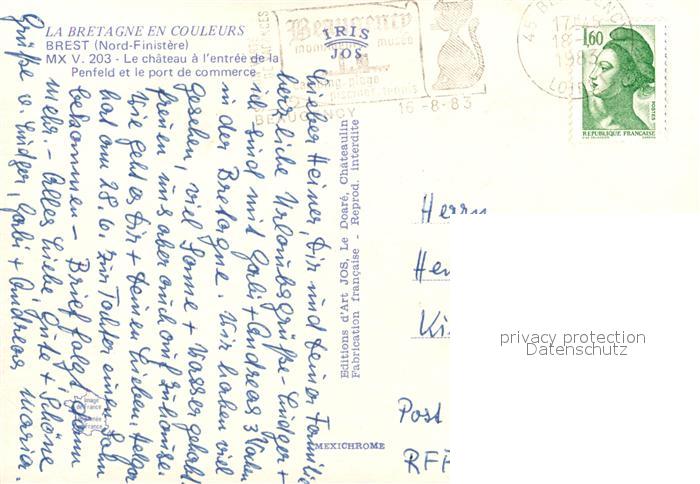 LA BRETAGNE EN COULEURS
BREST (Nord-Finistère)
MX V. 203 - Le château à l'entrée de la
Penfeld et le port de commerce
IRIS
JOS
Beaugency
musée
camping, plage
piscines, tennis
BEAUGENCY 16-8-83
45 BEAUGENCY
17H45
18-8
1983
LOIRET
1,60
POSTES
REPUBLIQUE FRANÇAISE
Lieber Heiner, Dir und Deiner Familie
herzliche Urlaubsgrüße - Ludger +
ich sind mit Gabi + Andreas 3 Wochen
in der Bretagne. Wir haben viel
gesehen, viel Sonne + Wasser gehabt
freuen uns aber auch auf zuhause.
Wie geht es Dir + Deinen Lieben. Helga
hat am 28.6. zur Tochter einen Sohn
bekommen - Brief folgt dann
mehr. Alles Liebe, Gute + Schöne
Grüße v. Ludger, Gabi + Andreas Maria.
Editions d'Art JOS, Le Doaré, Châteaulin
Fabrication française - Reprod. interdite
MEXICHROME
Image
de France
Herrn
Hei
Ki
Post
RFF
privacy protection
Datenschutz